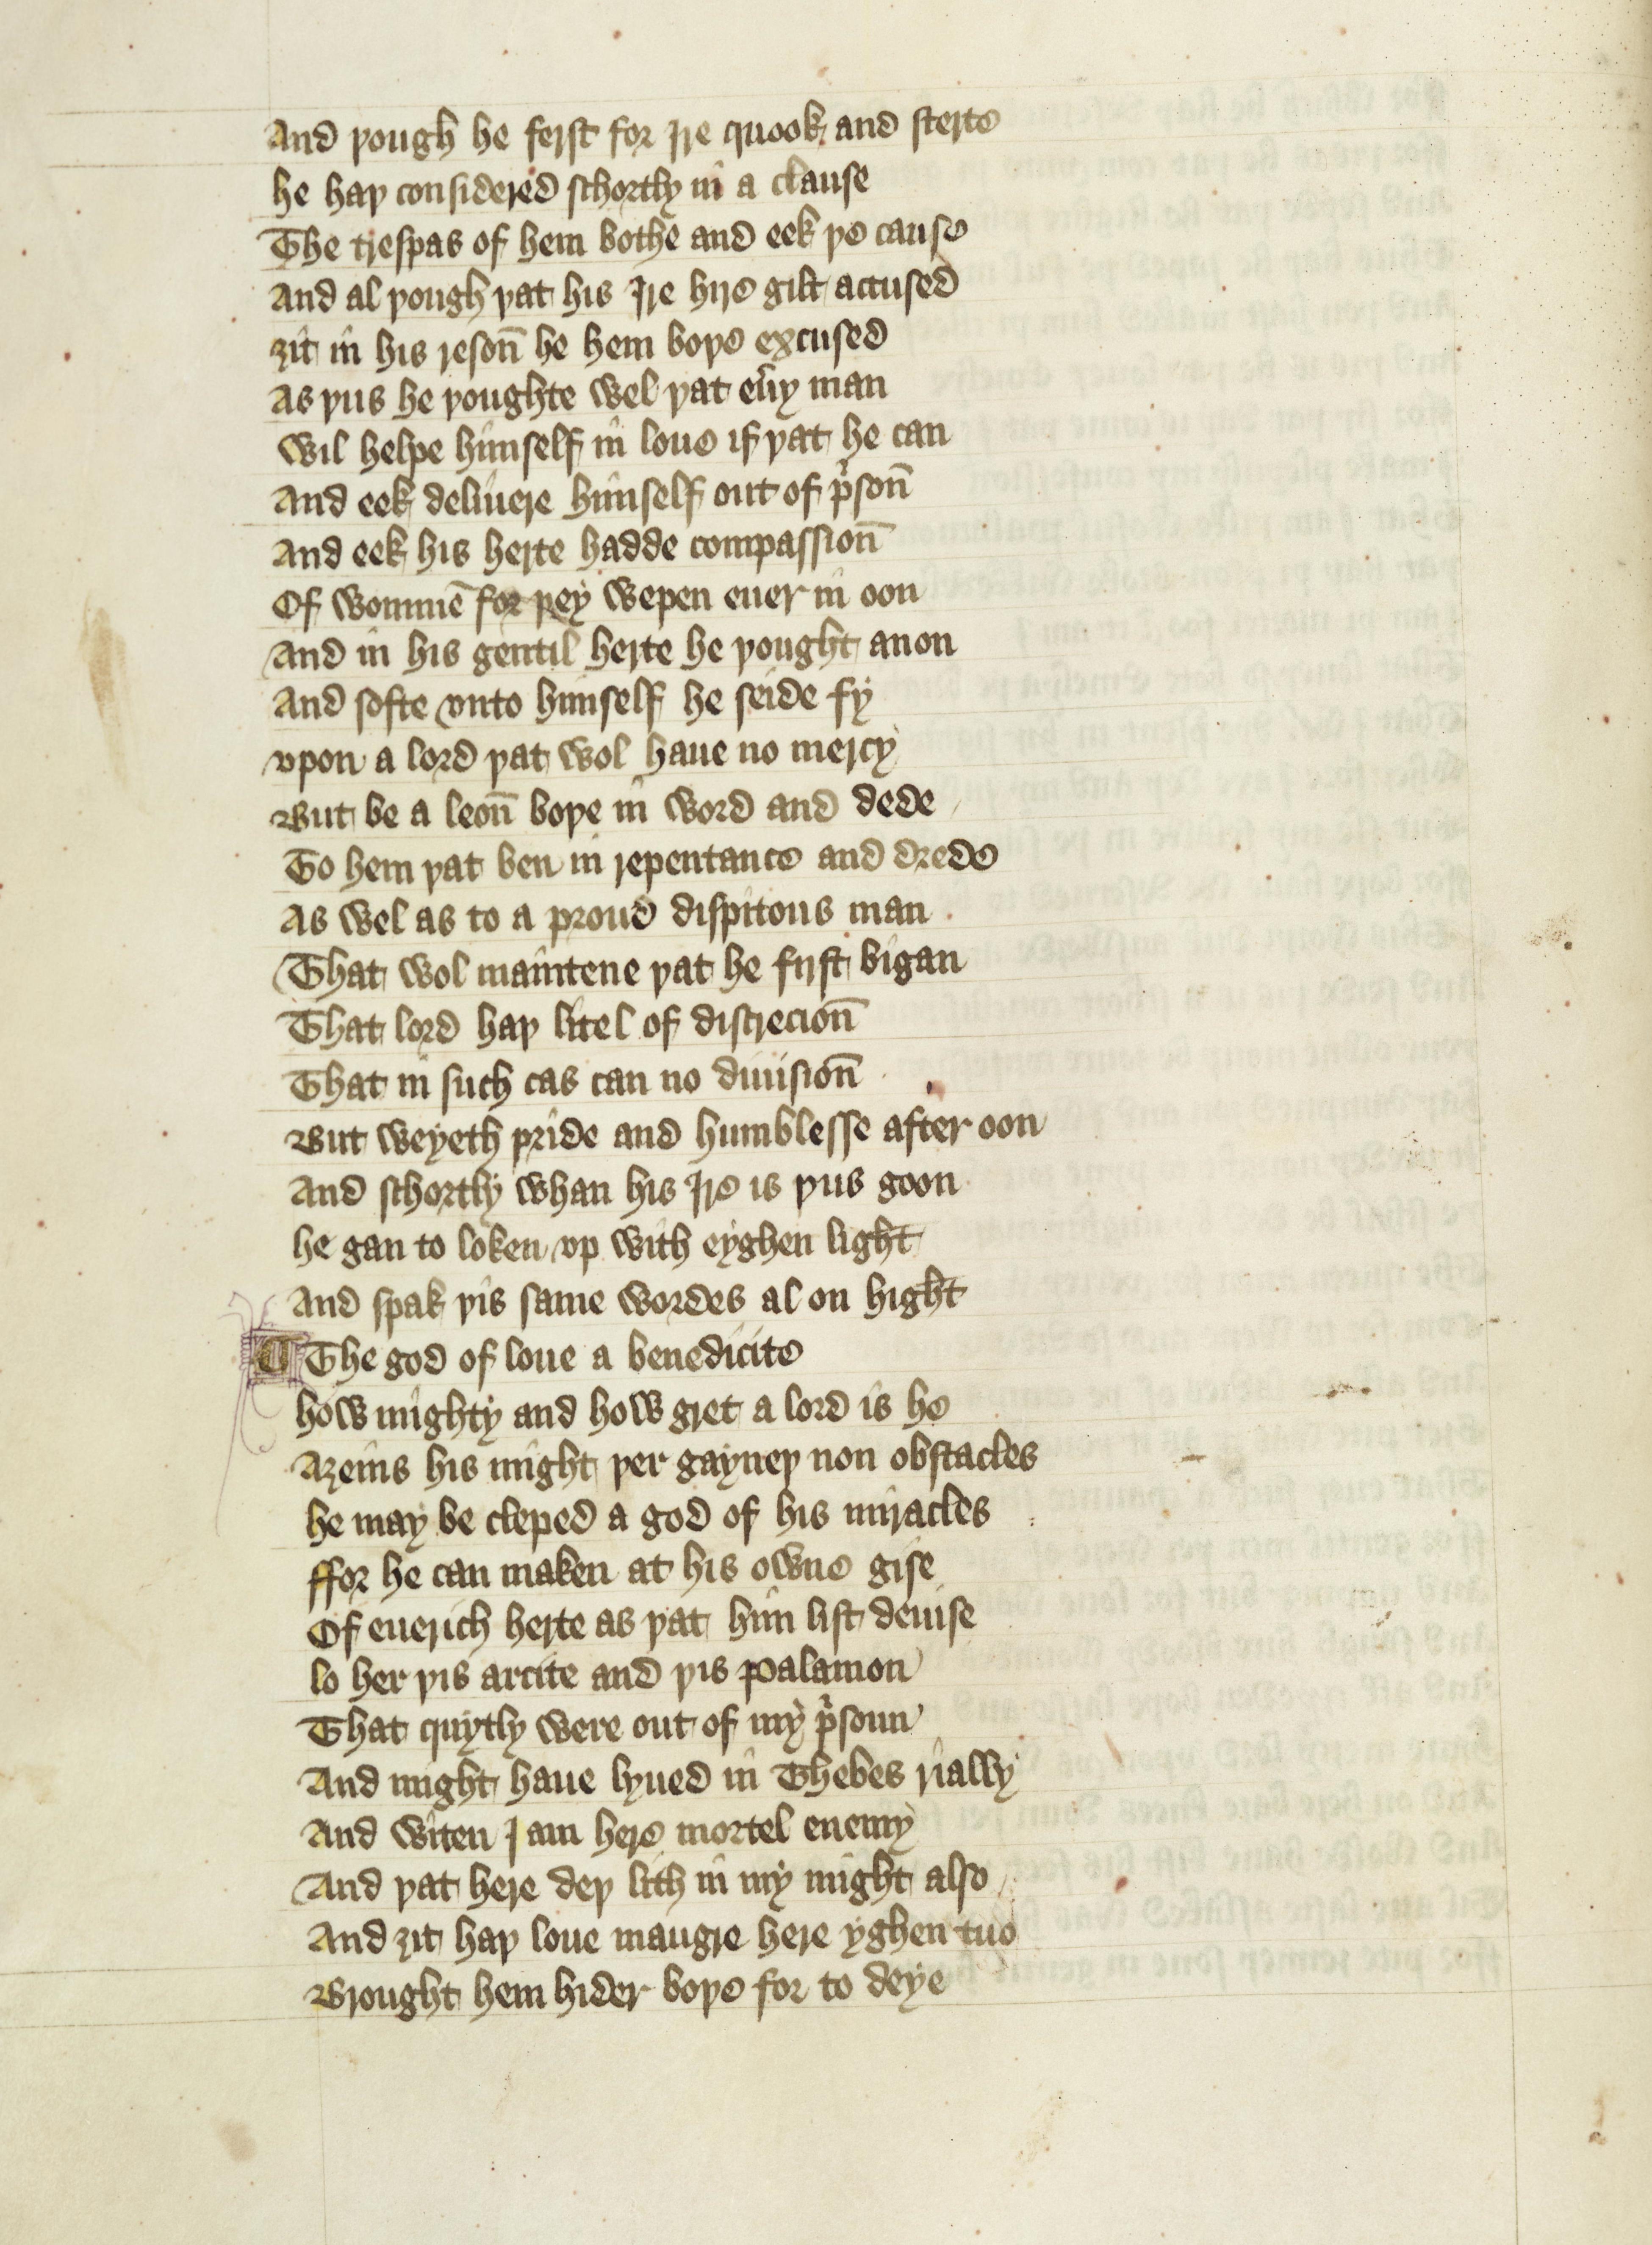 And þough he ferst for Ire quook and sterte
he haþ considered schortly in a clause
The trespas of hem bothe and eek þe cause
And al þough þat his Ire hire gilt accused
ȝit in his resoun̄ he hem boþe excused
As þus he þoughte wel þat eu̾y man
wil helpe himself in loue if þat he can
And eek deliuere himself out of p̾son̄
And eek his herte hadde compassion̄
Of wommē for þey wepen euer in oon
And in his gentil herte he þought anon
And softe vnto himself he seide fy
vpon a lord þat wol haue no mercy
But be a leon̄ boþe in word and dede
To hem þat ben in repentance and drede
As wel as to a proud dispitous man
That wol maintene þat he first bigan
That lord haþ litel of discrecion̄
That in such cas can no diuision̄
But weyeth pride and humblesse after oon
And schortly whan his Ire is þus goon
he gan to loken vp with eyghen light
And spak þis same wordes al on hight
¶ The god of loue a benedicite
how mighty and how gret a lord is he
Aȝeins his might þer gayneþ non obstacles
he may be cleped a god of his miracles
ffor he can maken at his owne gise
Of euerich herte as þat him list deuise
lo her þis arcite and þis palamon
That quytly were out of my p̾soun
And might haue lyued in Thebes rially
And witen I am here mortel enemy
And þat here deþ lith in my might also
And ȝit haþ loue maugre here yghen tuo
Brought hem hider boþe for to deye